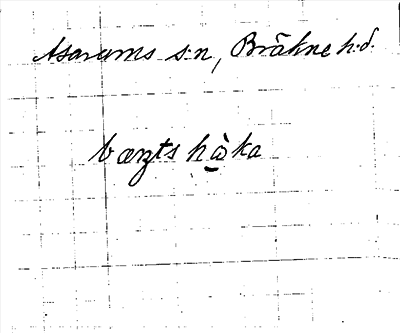 Asarums s:n, Bräkne h.d.
bæŋts hà̤ka